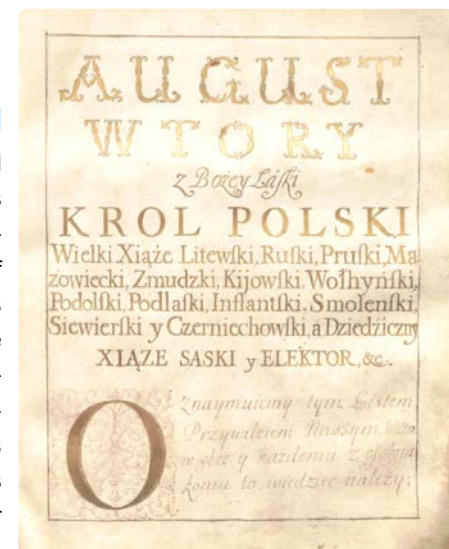 AUGUST
WTORY
z Bożey Łáſki
KROL POLSKI
Wielki Xiąże Litewſki, Ruſki, Pruſki, Ma
zowiecki, Zmudzki, Kijowſki, Wołhyńſki,
Podolſki, Podlaſki, Inflantſki, Smolenſki,
Siewierſki y Czerniechowſki, a Dziedźiczny
XIĄZE SASKI y ELEKTOR, &c.
Oznaymuiemy tym Listem
Przywileiem Naszym,
w obec y każdemu z
komu to wiedziec należy;